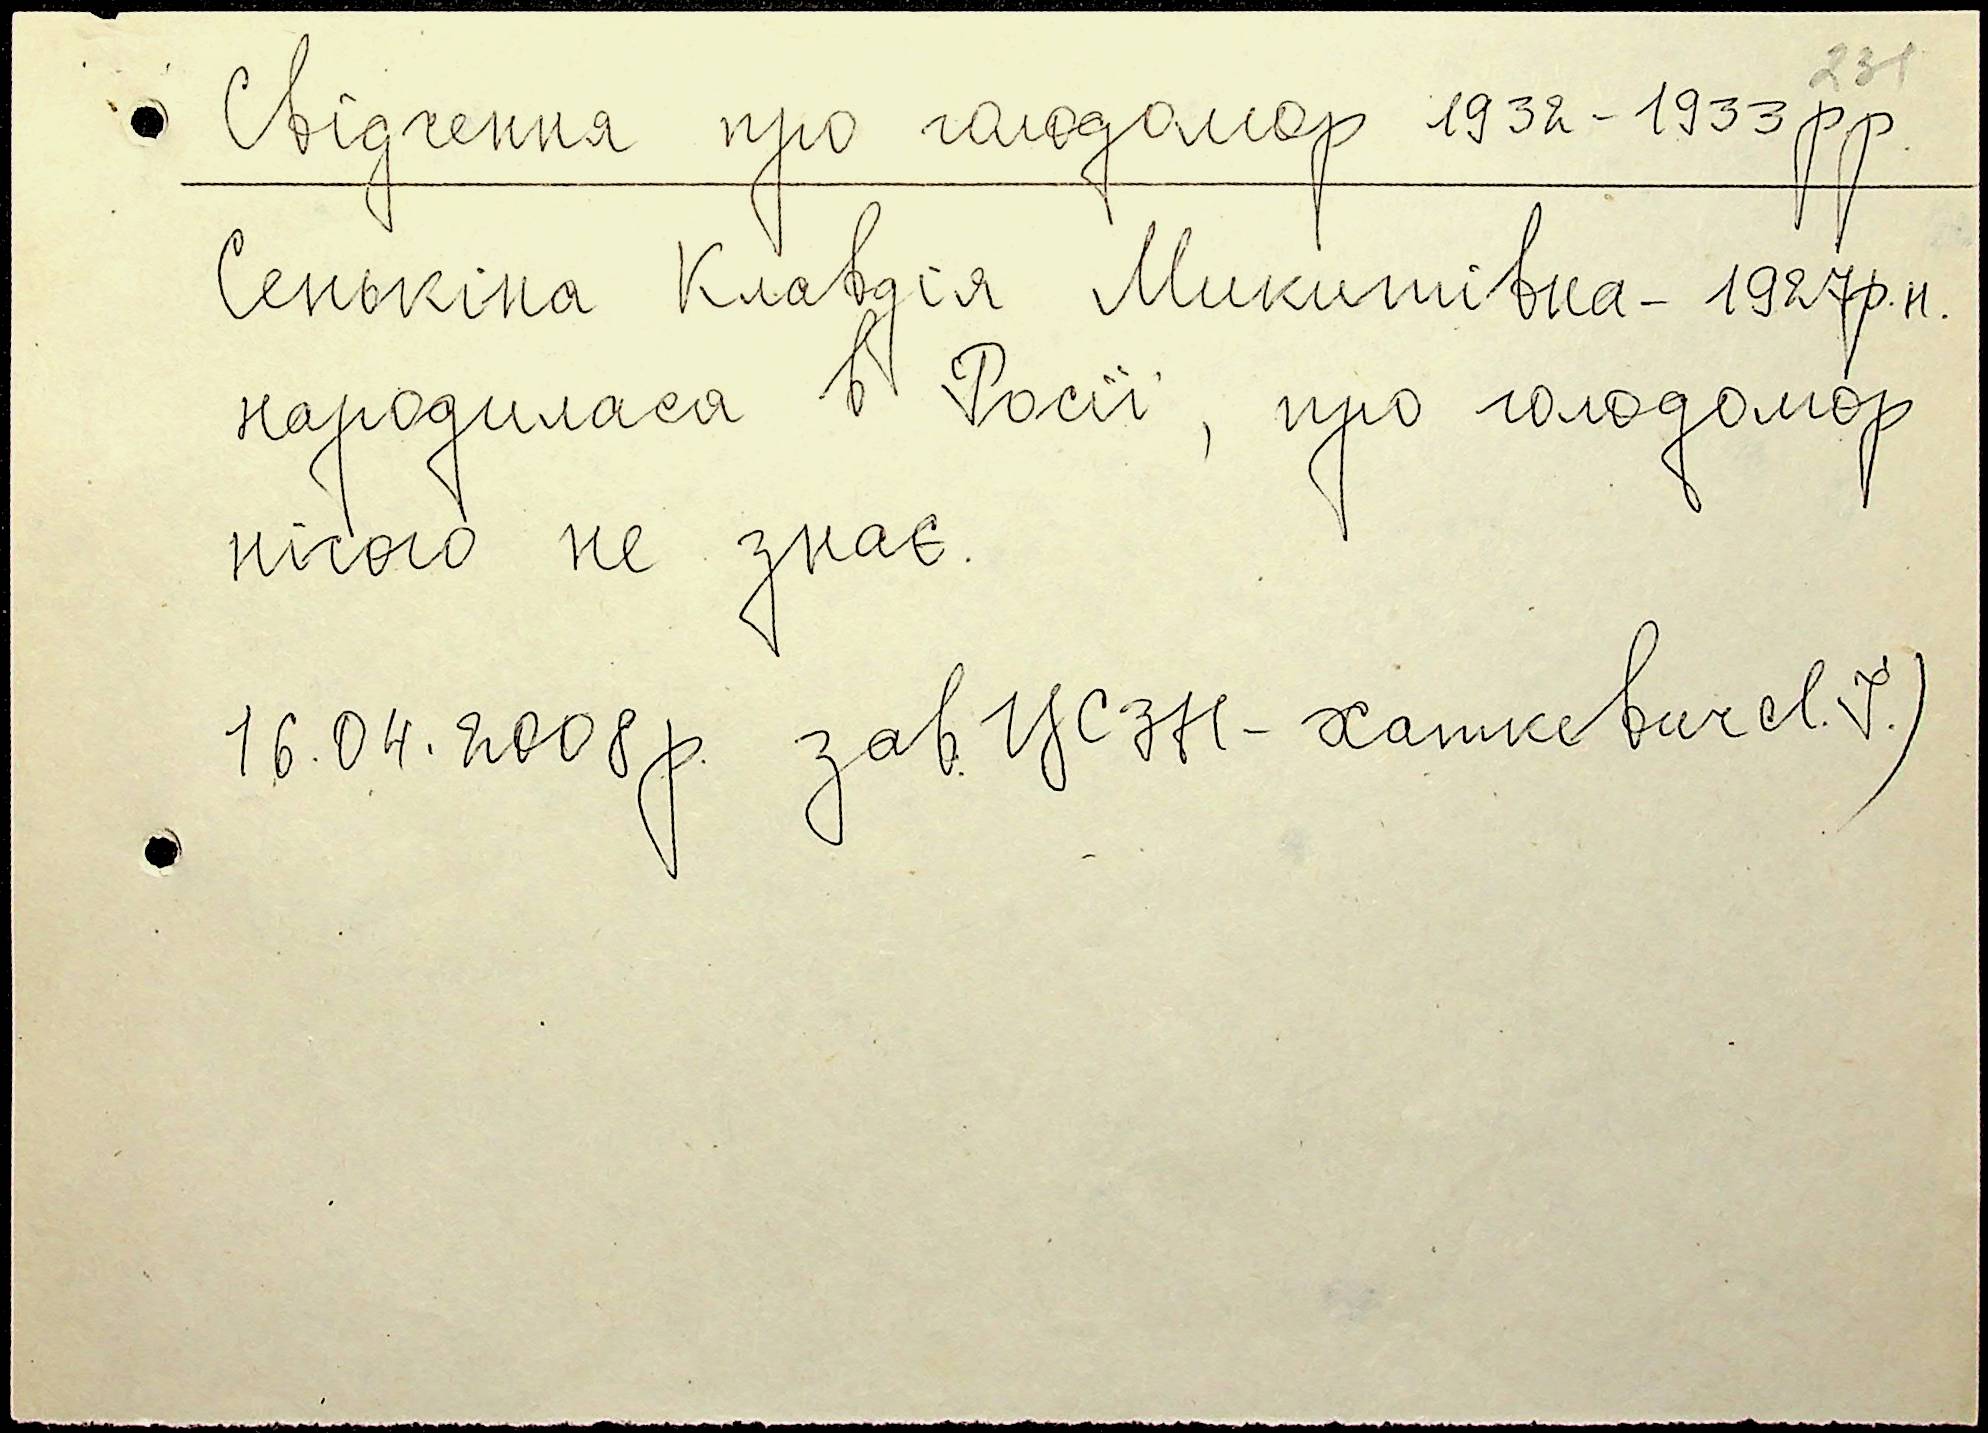 231
Свідчення про голодомор 1932-1933 рр.
Сенькіна Клавдія Микитівна - 1927р.н.
народилася в Росії, про голодомор
нічого не знає.
16.04.2008р. зав. ЦСЗН - Хаткевич Л.І.)